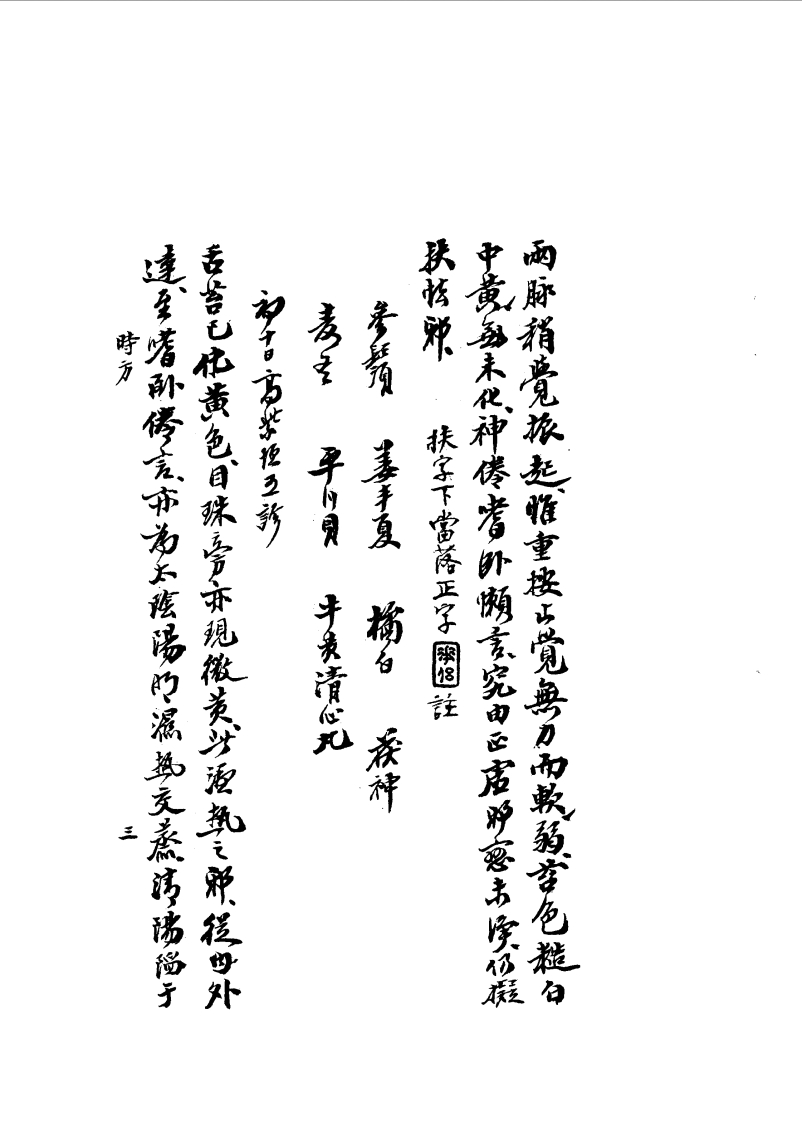 兩脉稍覺振起、惟重按上覺無力而軟弱、苔色糙白
中黃、無未化、神倦嗜卧懶言、究由正虛邪戀未淨、仍擬
扶怯邪、 扶字下當落正字 註
參鬚 姜半夏 橘白 茯神
麦冬 平川貝 牛黄清心丸
初十日高紫垣五診
舌苔已化黃色、目珠旁亦現微黄、此濕熱之邪、從內外
達、至嗜卧倦言、亦為太陰陽明濕熱交蒸、清陽隘于
時方
三